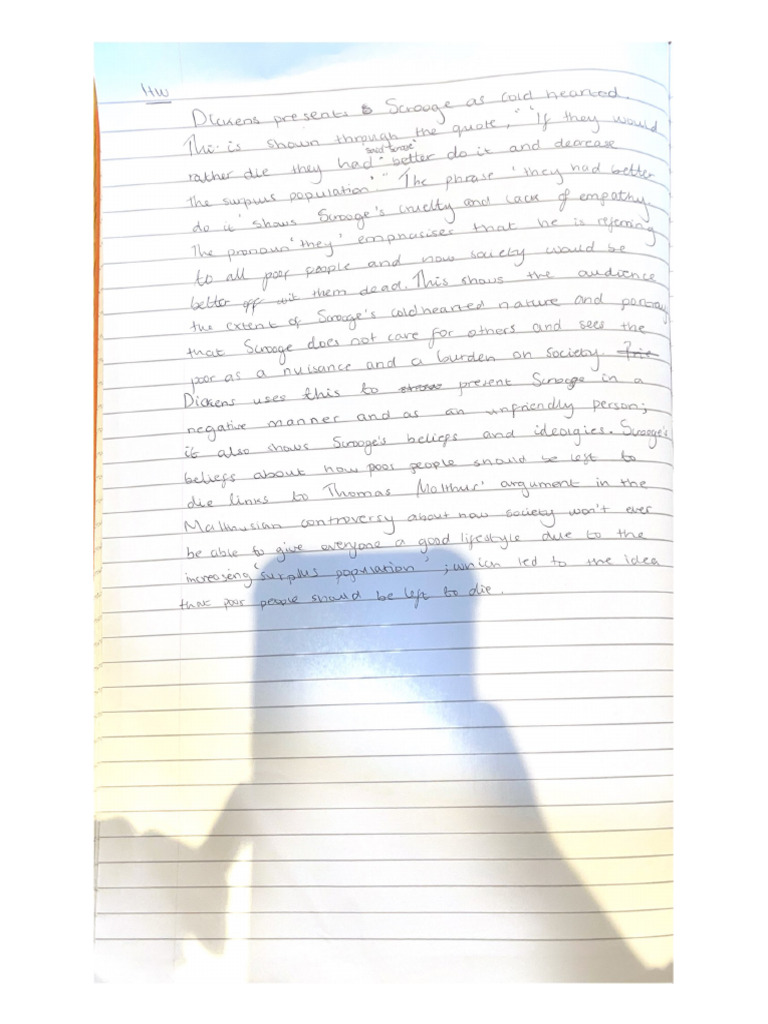 HW
Dickens presents Scrooge as cold hearted.
This is shown through the quote, "'If they would
said Scrooge'
rather die they had " better do it and decrease
the surplus population'" The phrase 'they had better
do it' shows Scrooge's cruelty and lack of empathy.
The pronoun 'they' emphasises that he is referring
to all poor people and how society would be
better off with them dead. This shows the audience
the extent of Scrooge's coldhearted nature and portray
that Scrooge does not care for others and sees the
poor as a nuisance and a burden on society.
Dickens uses this to present Scrooge in a
negative manner and as an unfriendly person;
it also shows Scrooge's beliefs and ideolgies. Scrooge's
beliefs about how poor people should be left to
die links to Thomas Malthus' argument in the
Malthusian controversy about how society won't ever
be able to give everyone a good lifestyle due to the
increasing 'surplus population' ; which led to the idea
that poor people should be left to die.